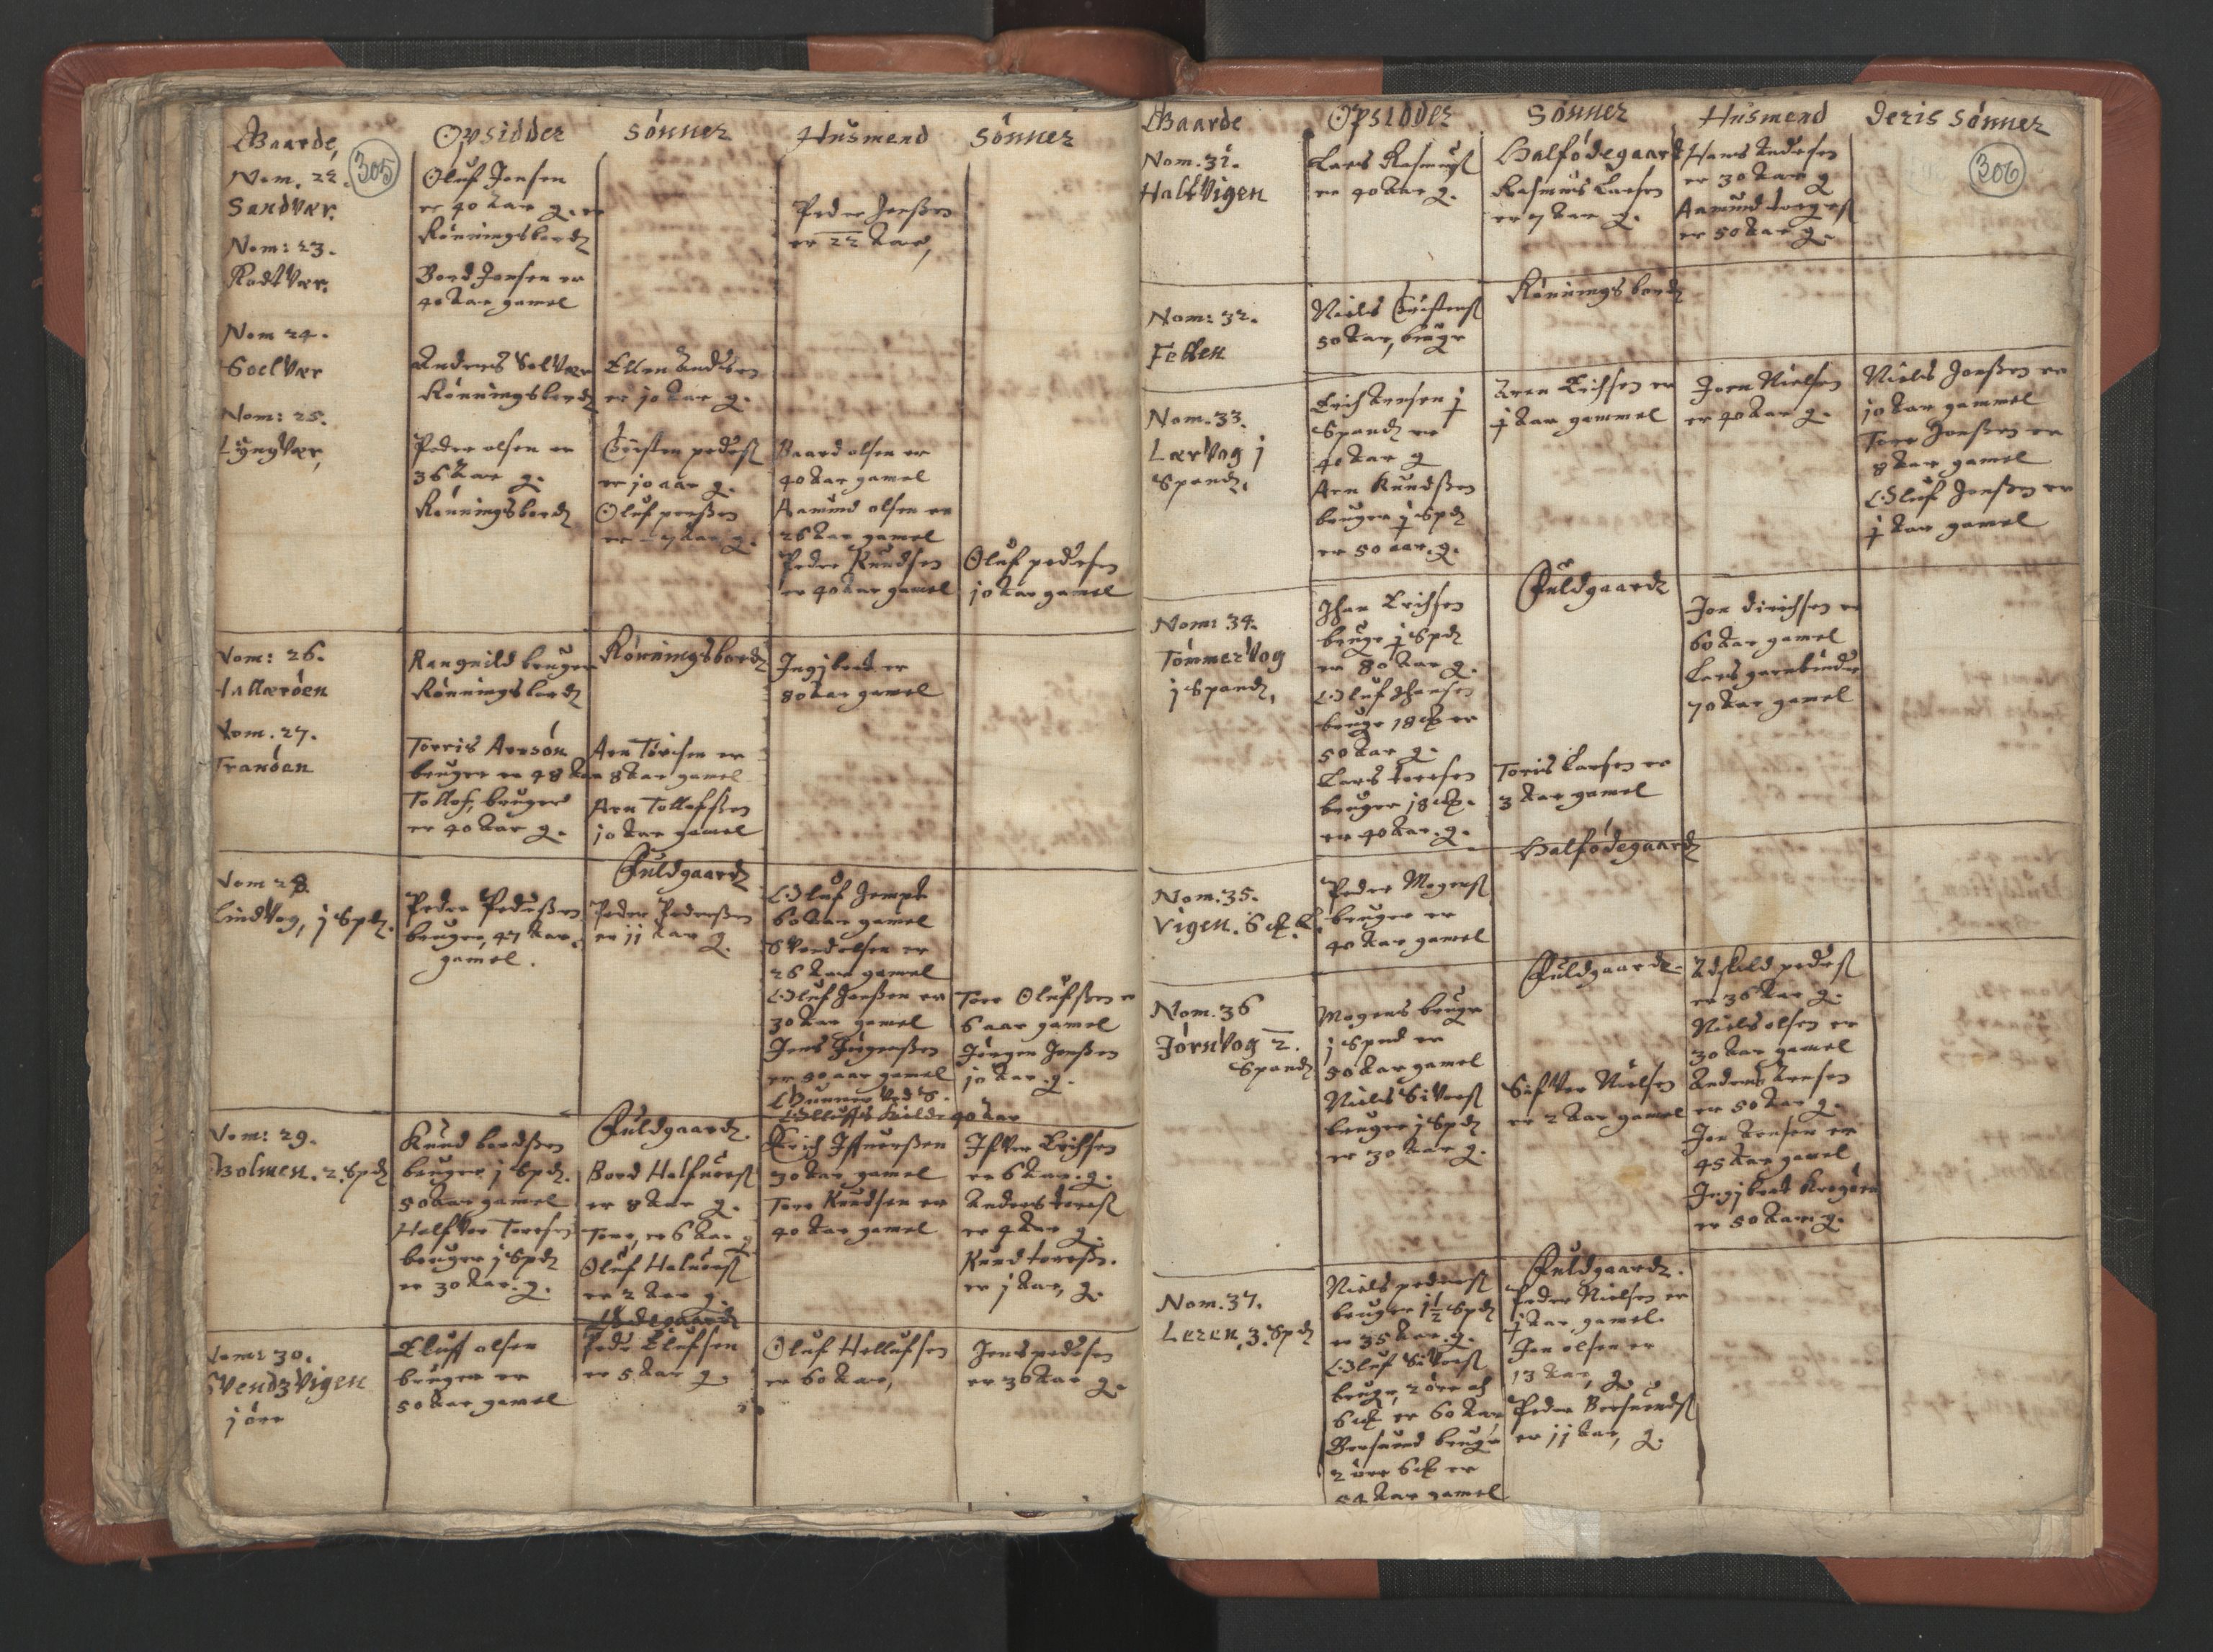 Gaarde,
Opsidder
Sönner
Husmend
Sönner
305
Nom. 22.
Sandvær.
Oluf Jonsen
er 40 Aar g. er
Rönningsbord
Peder Jenssen
er 22 Aar,
Nom: 23.
Rodtvær.
Bord Jonsen er
40 Aar gamel
Nom 24.
Soelvær
Anders Solvær
Rönningsbord
Ellen Andersen
er 10 Aar g.
Nom: 25.
Lyngvær,
Peder olsen er
36 Aar g.
Rönningsbord
Cristen peders
er 10 aar g.
Oluf perssen
er 7 Aar g.
Baard olsen er
40 Aar gamel
Aamund olsen er
26 Aar gamel
Peder Knudsen
er 40 Aar gamel
Oluf pedersen
10 Aar gamel
Nom: 26.
Hallaröen
Rangnild bruger
Rönningsbord
Rönningsbord
Ingibret er
80 Aar gamel
Nom. 27.
Tranöen
Torris Arnsön
bruger er 48 Aar
Tollof, bruger
er 40 Aar g.
Arn Torisen er
8 Aar gamel
Arn Tollofssen
10 Aar gamel
Nom 28.
Lindvog, j Spd.
Fuldgaard
Peder Pederssen
bruger, 47 Aar
gamel.
Peder Pederssen
er 11 Aar g.
Oluf Jempt
60 Aar gamel
Svend olsen er
26 Aar gamel
Oluf Jonssen er
30 Aar gamel
Jens Jörgenssen
er 50 aar gamel
Gunner
40 Aar
Tore Olufssen er
6 aar gamel
Jörgen Jenssen
10 Aar. g.
Nom: 29.
Bolmen. 2. Spd
Fuldgaard.
Knud bordssen
bruger j Spd.
50 Aar gamel
Halfvor Toresen
bruger j Spd
er 30 Aar. g.
Bord Halfuors
er 8 Aar g.
Tore, er 6 Aar g
Oluf Haluors
er 2 Aar g.
Erich Iffuerssen
30 Aar gamel
Tore Knudsen er
40 Aar gamel
Ifver Erichsen
er 6 Aar. g.
Anders tores
er 4 Aar g.
Knud toress.
er j Aar, g.
Nom: 30.
Svendzvigen
j öre
Ödegaard
Eluff olsen
bruger er
50 Aar gamel
Peder Elufsen
er 5 Aar g.
Oluf Hellufsen
er 60 Aar,
Jens pedersen
er 36 Aar g.
Gaarde
Opsidder
Sönner
Husmend
Deris Sönner
306
Nom. 31.
Halsvigen
Lars Rasmus
er 40 Aar g.
Halfödegaard
Rasmus Larsen
er 7 Aar g.
Hans Andersen
er 30 Aar g
Aamund torgers
er 50 Aar g.
Nom: 32.
Fellen
Rönningsbord
Niels Cristens
50 Aar, bruger
Nom. 33.
Lærvog j
Spand,
Erich Arnsen ½
Spand er
40 Aar g
Arn Knudssen
bruger ½ Spd
er 50 aar. g.
Aren Erichsen er
½ Aar gammel
Joen Nielsen
er 40 Aar g.
Niels Jonssen er
10 Aar gammel
Tore Jonssen er
8 Aar gamel
Oluf Jonssen er
½ Aar gamel
Nom: 34.
Tömmervog
j Spand,
Fuldgaard
Jhan Erichsen
bruger ½ Spd
er 80 Aar g.
Oluf Jhansen
bruger 18 er
50 Aar g.
Lars toresen
bruger 18
er 40 Aar. g.
Toris Larsen er
3 Aar gamel
Jon dirichsen er
60 Aar gamel
Lars garnbinder
70 Aar gamel
Nom. 35.
Vigen. 6
Halfödegaard
Peder Mogens
bruger er
40 Aar gamel
Nom. 36
Jörnvog 2.
Spand
Fuldgaard.
Mogens bruger
j Spnd er
50 Aar gamel
Niels Sivers
bruger j Spd
er 30 Aar g.
Sifver Nielsen
er 2 Aar gamel
Edskild peders
er 36 Aar g.
Niels olsen er
30 Aar gamel
Anders Arnsen
er 50 Aar g.
Jon Arnsen er
45 Aar gamel
Ingibret
er 50 Aar g.
Nom. 37.
Leren, 3. Spd
Fuldgaard.
Niels peders
bruger 1½ Spd
er 35 Aar. g.
Oluf Sivers
bruger, 2 öre och
6 er 60 Aar
Bersuend bruger
2 öre 6 er
54 Aar gamel
Peder Nielsen er
½ Aar gamel.
Jon olsen er
13 Aar, g.
Peder Bersuends
er 11 Aar, g.